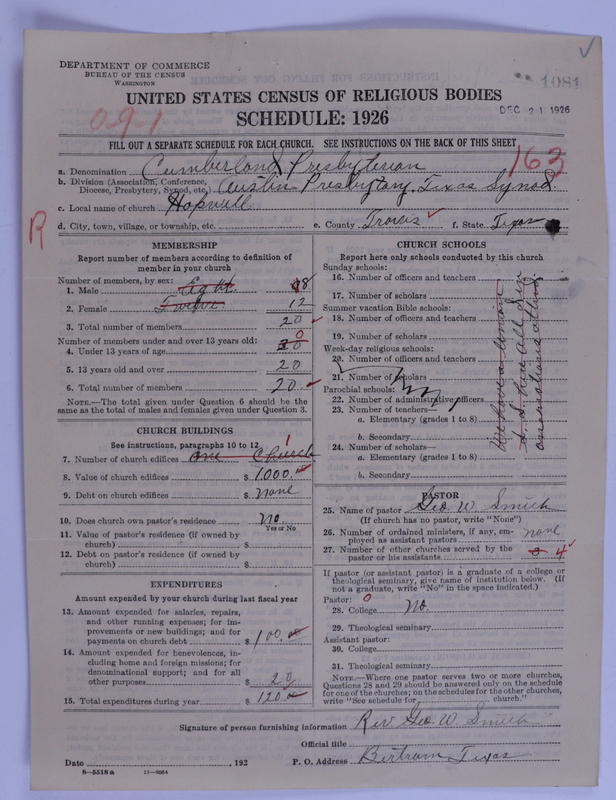 DEPARTMENT OF COMMERCE
BUREAU OF THE CENSUS
WASHINGTON
1081
UNITED STATES CENSUS OF RELIGIOUS BODIES
DEC 21 1926
SCHEDULE: 1926
0-9-1
FILL OUT A SEPARATE SCHEDULE FOR EACH CHURCH. SEE INSTRUCTIONS ON THE BACK OF THIS SHEET
163
a. Denomination Cumberland Presbyterian
b. Division (Association, Conference, Diocese, Presbytery, Synod, etc.) Austin Presbytery, Texas Synod
c. Local name of church Hopwell
R
d. City, town, village, or township, etc. e. County Travis f. State Texas
MEMBERSHIP
Report number of members according to definition of
member in your church
Number of members, by sex:
1. Male Eight 8
2. Female Twelve 12
3. Total number of members 20
Number of members under and over 13 years old:
4. Under 13 years of age 0
5. 13 years old and over 20
6. Total number of members 20
NOTE.—The total given under Question 6 should be the
same as the total of males and females given under Question 3.
CHURCH BUILDINGS
See instructions, paragraphs 10 to 12
7. Number of church edifices One Church 1
8. Value of church edifices $ 1,000.00
9. Debt on church edifices $ None
10. Does church own pastor's residence No
Yes or No
11. Value of pastor's residence (if owned by
church) $
12. Debt on pastor's residence (if owned by
church) $
EXPENDITURES
Amount expended by your church during last fiscal year
13. Amount expended for salaries, repairs,
and other running expenses; for im-
provements or new buildings; and for
payments on church debt $ 100.00
14. Amount expended for benevolences, in-
cluding home and foreign missions; for
denominational support; and for all
other purposes $ 20
15. Total expenditures during year $ 120.00
CHURCH SCHOOLS
Report here only schools conducted by this church
Sunday schools:
16. Number of officers and teachers
17. Number of scholars
Summer vacation Bible schools:
18. Number of officers and teachers
19. Number of scholars
Week-day religious schools:
20. Number of officers and teachers
21. Number of scholars
Parochial schools:
22. Number of administrative officers
23. Number of teachers—
a. Elementary (grades 1 to 8)
b. Secondary
24. Number of scholars—
a. Elementary (grades 1 to 8)
b. Secondary
We have a Union
S. S. here all
attend
PASTOR
25. Name of pastor Geo. W. Smith
(If church has no pastor, write "None")
26. Number of ordained ministers, if any, em-
ployed as assistant pastors none
27. Number of other churches served by the
pastor or his assistants 4
If pastor (or assistant pastor) is a graduate of a college or
theological seminary, give name of institution below. (If
not a graduate, write "No" in the space indicated.)
Pastor: 0
28. College No.
29. Theological seminary
Assistant pastor:
30. College
31. Theological seminary
NOTE.—Where one pastor serves two or more churches,
Questions 28 and 29 should be answered only on the schedule
for one of the churches; on the schedules for the other churches,
write "See schedule for church."
Signature of person furnishing information Rev. Geo. W. Smith
Official title
Date , 192 P. O. Address Bertram Texas
8—5518a 11—9064